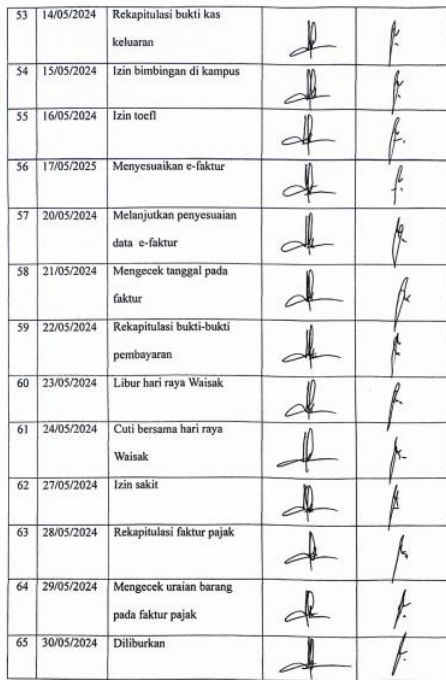 53 14/05/2024 Rekapitulasi bukti kas
keluaran
54 15/05/2024 Izin bimbingan di kampus
55 16/05/2024 Izin toefl
56 17/05/2025 Menyesuaikan e-faktur
57 20/05/2024 Melanjutkan penyesuaian
data e-faktur
58 21/05/2024 Mengecek tanggal pada
faktur
59 22/05/2024 Rekapitulasi bukti-bukti
pembayaran
60 23/05/2024 Libur hari raya Waisak
61 24/05/2024 Cuti bersama hari raya
Waisak
62 27/05/2024 Izin sakit
63 28/05/2024 Rekapitulasi faktur pajak
64 29/05/2024 Mengecek uraian barang
pada faktur pajak
65 30/05/2024 Diliburkan